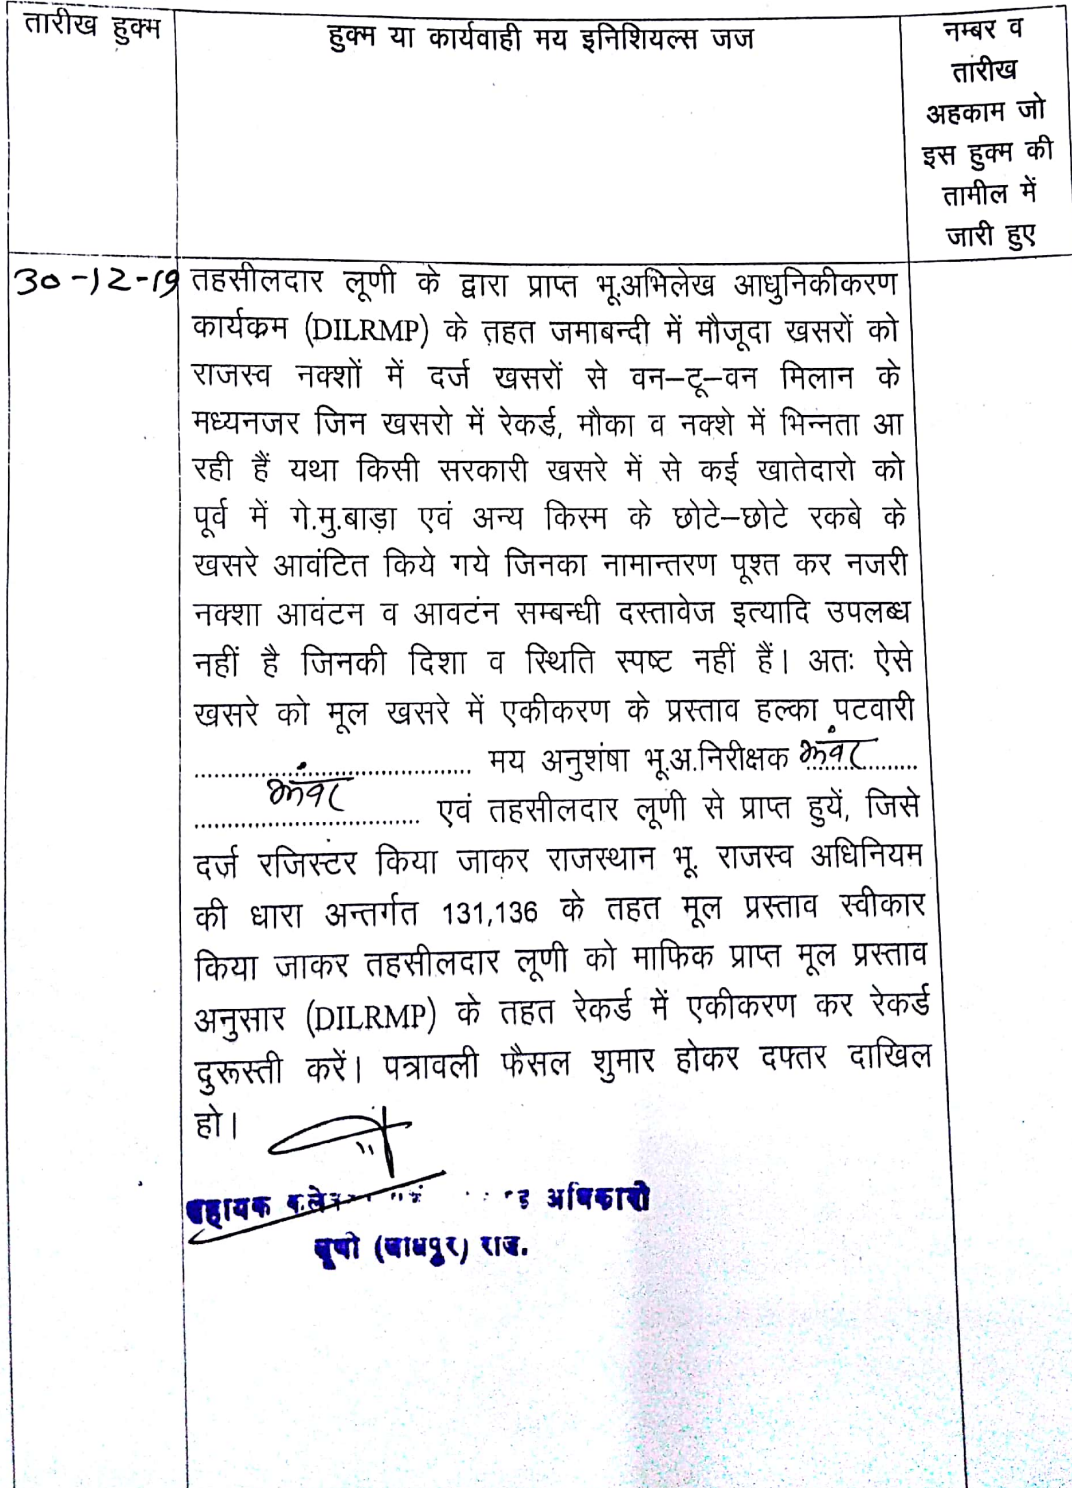 तारीख हुक्म
हुक्म या कार्यवाही मय इनिशियल्स जज
नम्बर व
तारीख
अहकाम जो
इस हुक्म की
तामील में
जारी हुए
30-12-19
तहसीलदार लूणी के द्वारा प्राप्त भू.अभिलेख आधुनिकीकरण
कार्यक्रम (DILRMP) के तहत जमाबन्दी में मौजूदा खसरों को
राजस्व नक्शों में दर्ज खसरों से वन–टू–वन मिलान के
मध्यनजर जिन खसरो में रेकर्ड, मौका व नक्शे में भिन्नता आ
रही हैं यथा किसी सरकारी खसरे में से कई खातेदारो को
पूर्व में गे.मु.बाड़ा एवं अन्य किस्म के छोटे–छोटे रकबे के
खसरे आवंटित किये गये जिनका नामान्तरण पूश्त कर नजरी
नक्शा आवंटन व आवटंन सम्बन्धी दस्तावेज इत्यादि उपलब्ध
नहीं है जिनकी दिशा व स्थिति स्पष्ट नहीं हैं। अतः ऐसे
खसरे को मूल खसरे में एकीकरण के प्रस्ताव हल्का पटवारी
झंवर मय अनुशंषा भू.अ.निरीक्षक झंवर
एवं तहसीलदार लूणी से प्राप्त हुयें, जिसे
दर्ज रजिस्टर किया जाकर राजस्थान भू. राजस्व अधिनियम
की धारा अन्तर्गत 131,136 के तहत मूल प्रस्ताव स्वीकार
किया जाकर तहसीलदार लूणी को माफिक प्राप्त मूल प्रस्ताव
अनुसार (DILRMP) के तहत रेकर्ड में एकीकरण कर रेकर्ड
दुरूस्ती करें। पत्रावली फैसल शुमार होकर दफ्तर दाखिल
हो।
सहायक अधिकारी
लूणी (जोधपुर) राज.